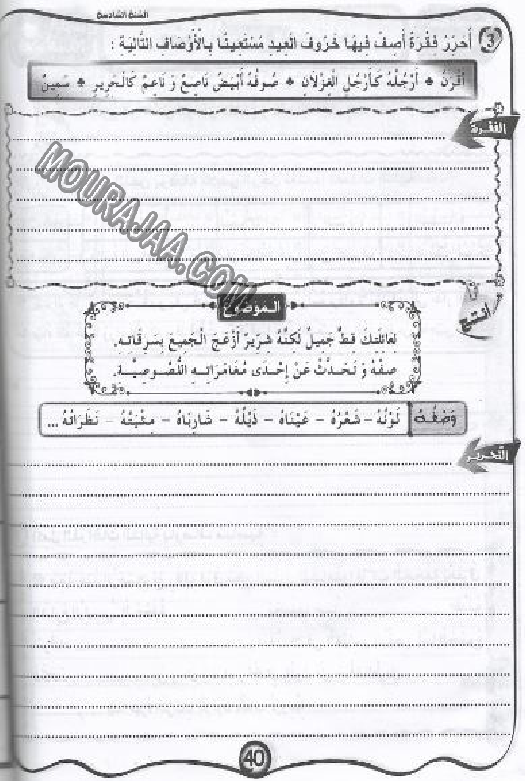 السنة السادسة
3 أُحَرِّرُ فِقْرَةً أَصِفُ فِيهَا خَرُوفَ الْعِيدِ مُسْتَعِينًا بِالْأَوْصَافِ التَّالِيَةِ :
أَقْرَنُ + أَرْجُلُهُ كَأَرْجُلِ الْغِزْلَانِ + صُوفُهُ أَبْيَضُ نَاصِعٌ وَ نَاعِمٌ كَالْحَرِيرِ + سَمِينٌ
الفقرة
MOURAJAA.COM
أنتج
الموضوع
لِعَائِلَتِكَ قِطٌّ جَمِيلٌ لَكِنَّهُ شِرِّيرٌ أَزْعَجَ الْجَمِيعَ بِسَرِقَاتِهِ.
صِفْهُ وَ تَحَدَّثْ عَنْ إِحْدَى مُغَامَرَاتِهِ اللُّصُوصِيَّةِ.
وَصْفُهُ لَوْنُهُ - شَعْرُهُ - عَيْنَاهُ - ذَيْلُهُ - شَارِبَاهُ - مِشْيَتُهُ - نَظَرَاتُهُ ...
التحرير
40